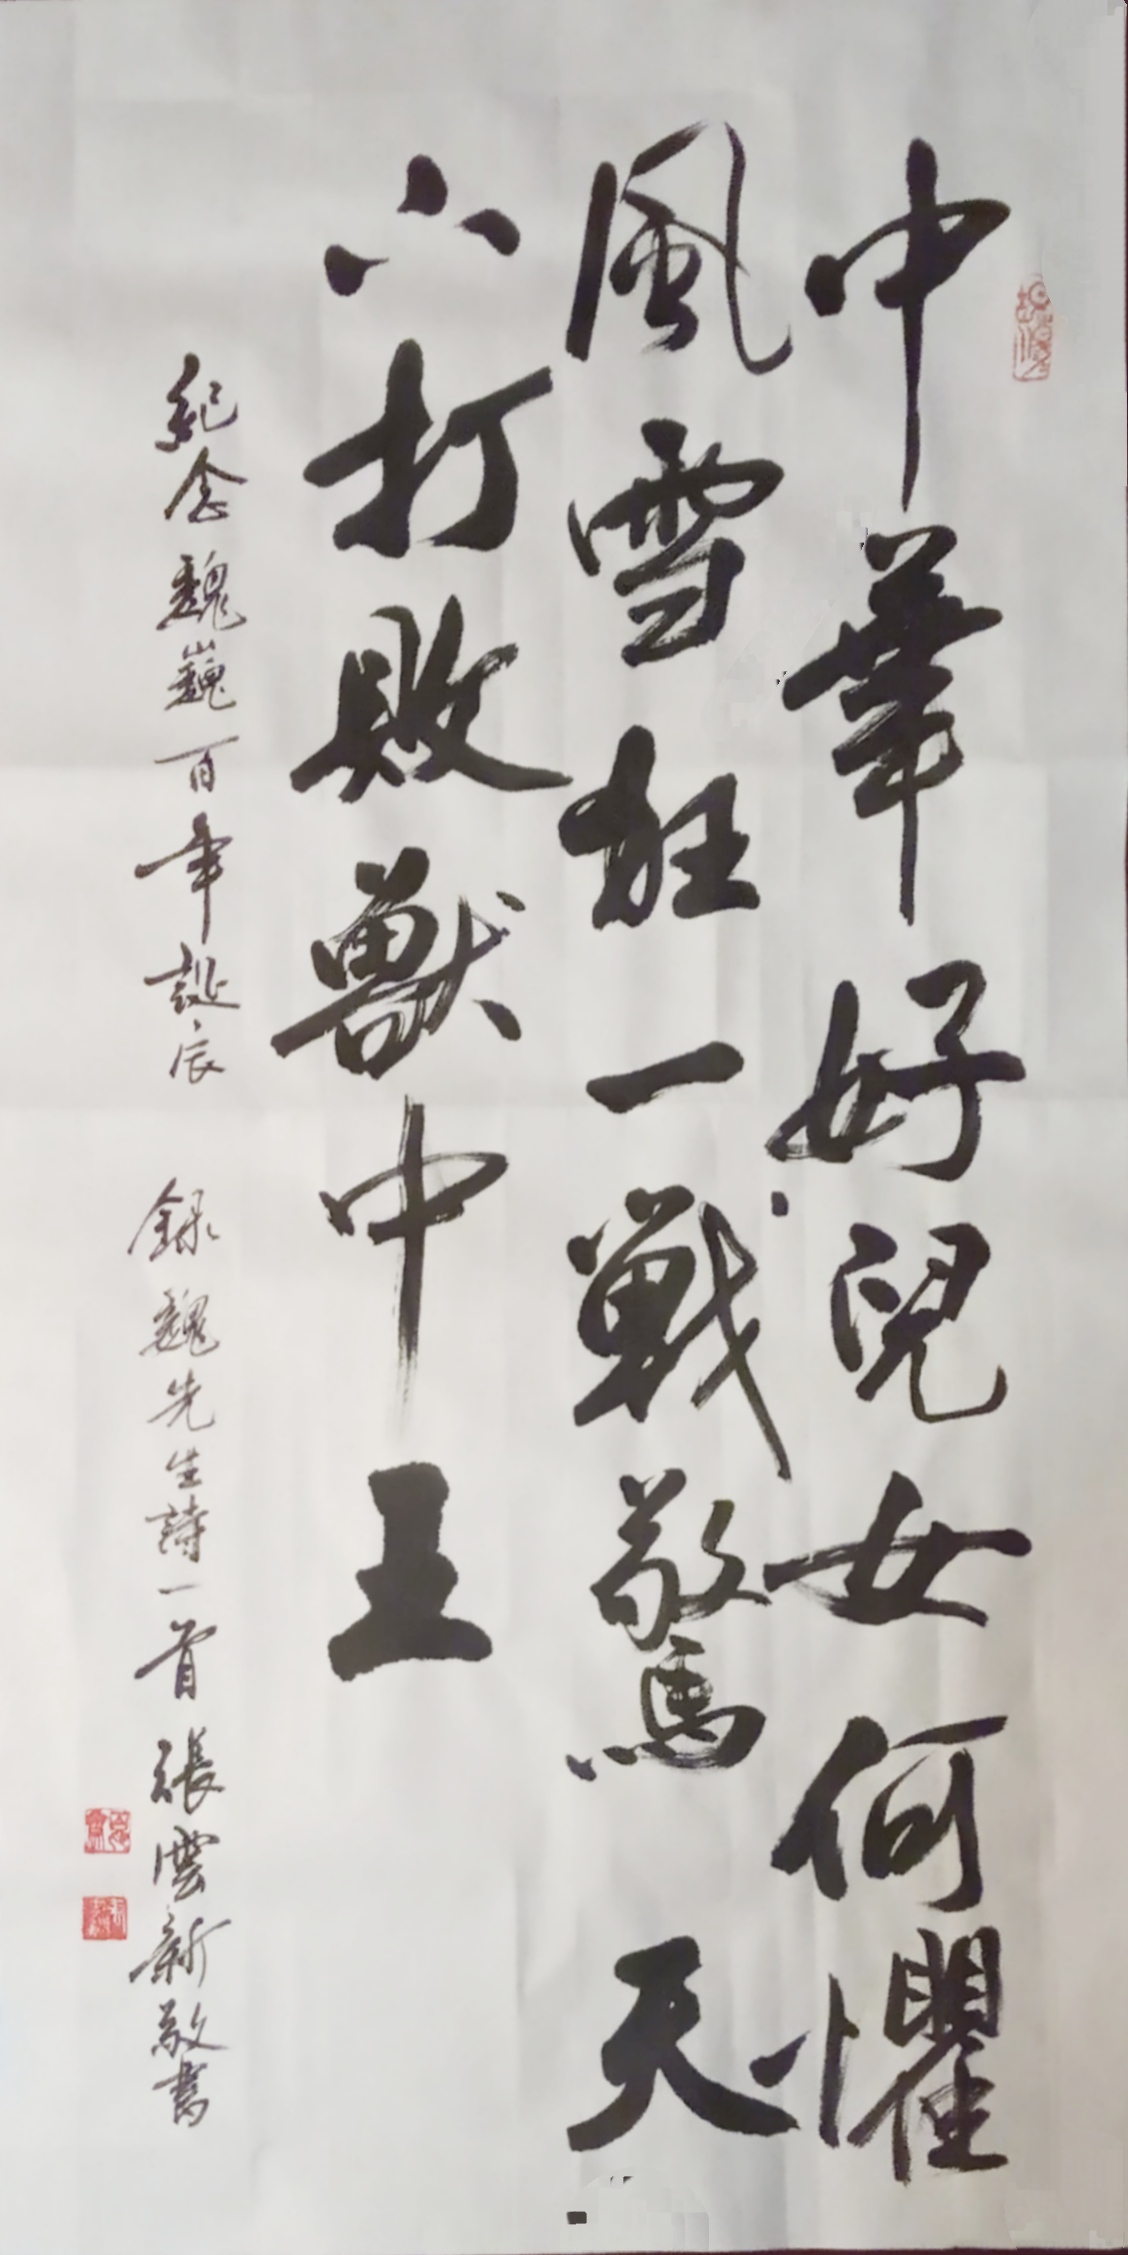 中華好兒女何懼
風雪狂一戰驚天
下打敗獸中王
紀念魏巍百年誕辰 錄魏先生詩一首 張雲新敬書